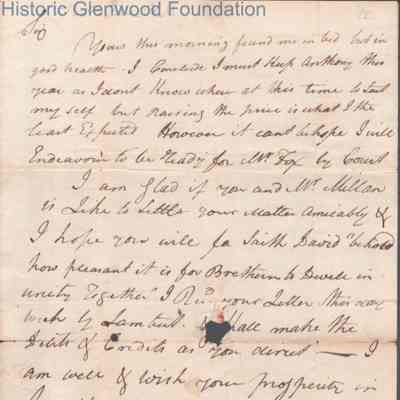 Historic Glenwood Foundation
Sir
Yours this morning found me in bed but in
good health. I Conclude I must Keep Anthony this
year as I dont Know where at this time to suit
my self but raising the price is what I the
least Expected However it cant be hope I will
Endeavour to be Ready for Mr. Fox by Court
I am Glad if you and Mr. Millan
is Like to Settle your Matter Amicably &
I hope you will fa Saith David "behold
how pleasant it is for Brethern to Dwell in
unity Together" I Recd. your Letter this day
Week by Lambert. Shall make the
Debits & Credits as you direct — I
am well & wish your prosperity in